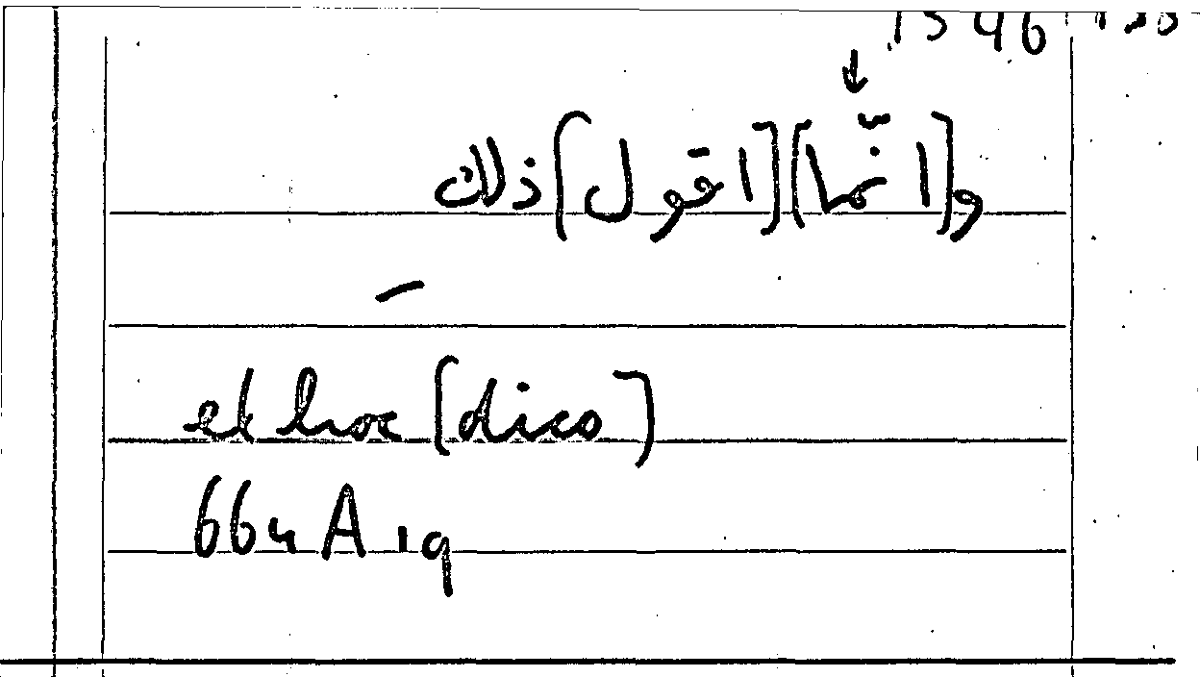 1546
↓
و[انّما][اقول]ذلك
–
et hoc [dico]
664 A 19